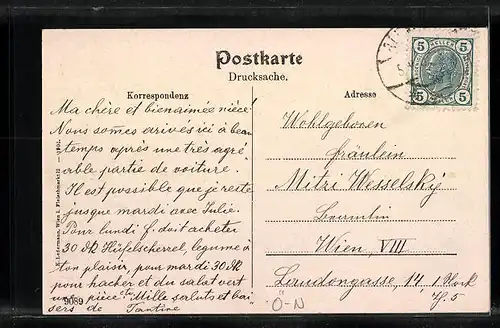 Postkarte
Drucksache.
Korrespondenz
Adresse
5 5
5 5
Ma chère et bienaimée nièce!
Nous somes arivés ici à beau
temps après une très agré-
able partie de voiture.
Il est possible que je reste
jusque mardi avec Julie.
Pour lundi f. doit acheter
30 dk Hüfelscherrel, legume à
ton plaisir, pour mardi 30 dk
pour hacher et du salat vert
une pièce. Mille saluts et bai-
sers de Tantine
Wohlgeboren
Fräulein
Mitzi Wesselsky
Wien, VIII
Laudongasse, 14 1 Stock
Th. 5
9089
Ö-N